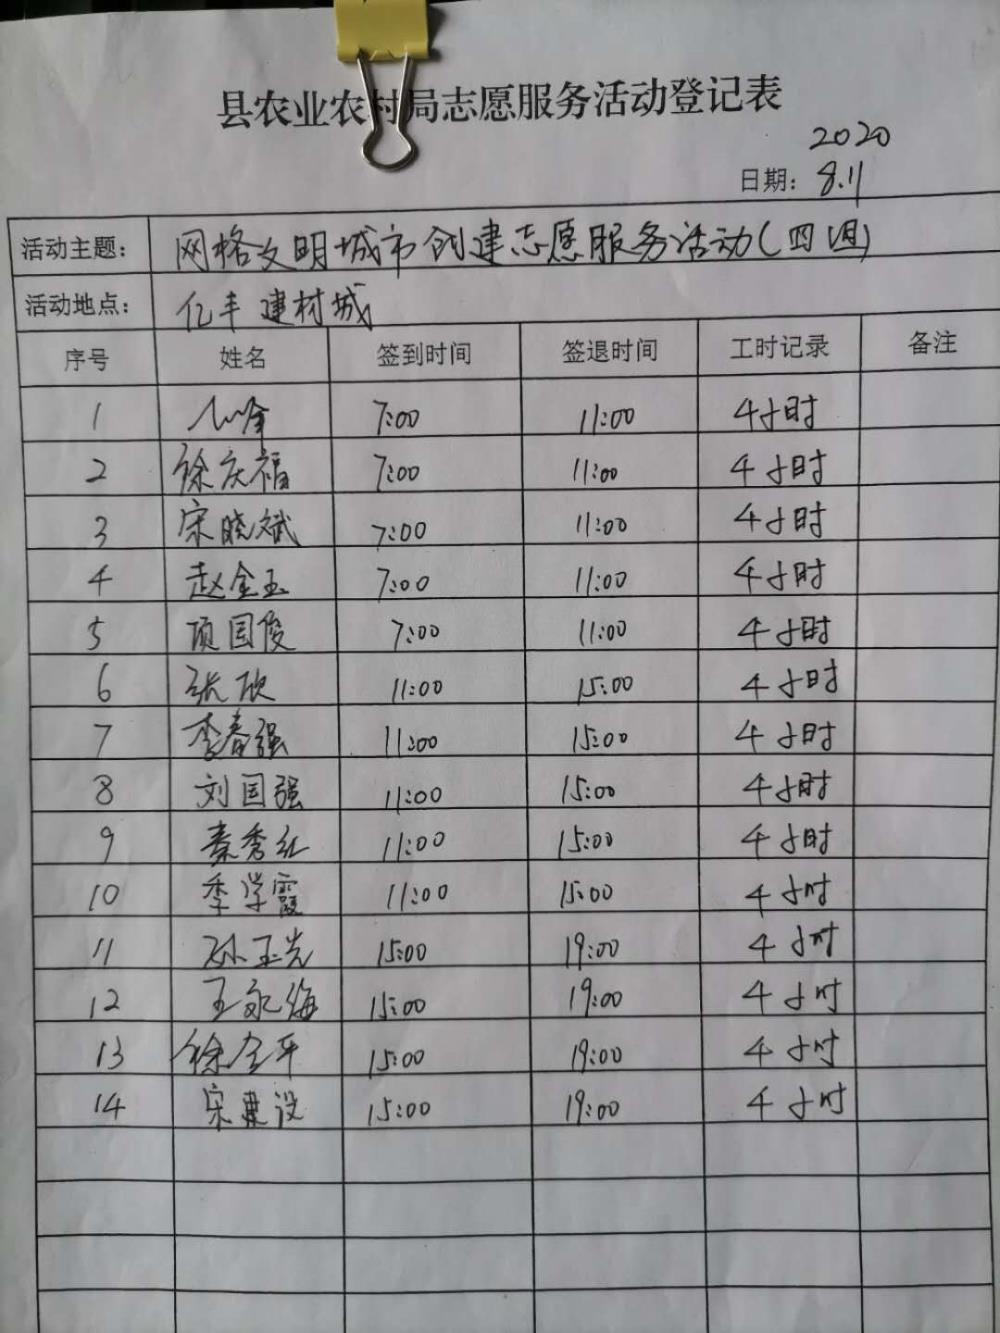 县农业农村局志愿服务活动登记表
2020
日期: 8.11
活动主题: 网格文明城市创建志愿服务活动(四组)
活动地点: 亿丰建材城
序号 姓名 签到时间 签退时间 工时记录 备注
1 7:00 11:00 4小时
2 徐庆福 7:00 11:00 4小时
3 宋晓斌 7:00 11:00 4小时
4 赵金玉 7:00 11:00 4小时
5 项国俊 7:00 11:00 4小时
6 张欣 11:00 15:00 4小时
7 李春强 11:00 15:00 4小时
8 刘国强 11:00 15:00 4小时
9 秦秀红 11:00 15:00 4小时
10 季学霞 11:00 15:00 4小时
11 孙玉光 15:00 19:00 4小时
12 王永海 15:00 19:00 4小时
13 徐全平 15:00 19:00 4小时
14 宋建设 15:00 19:00 4小时